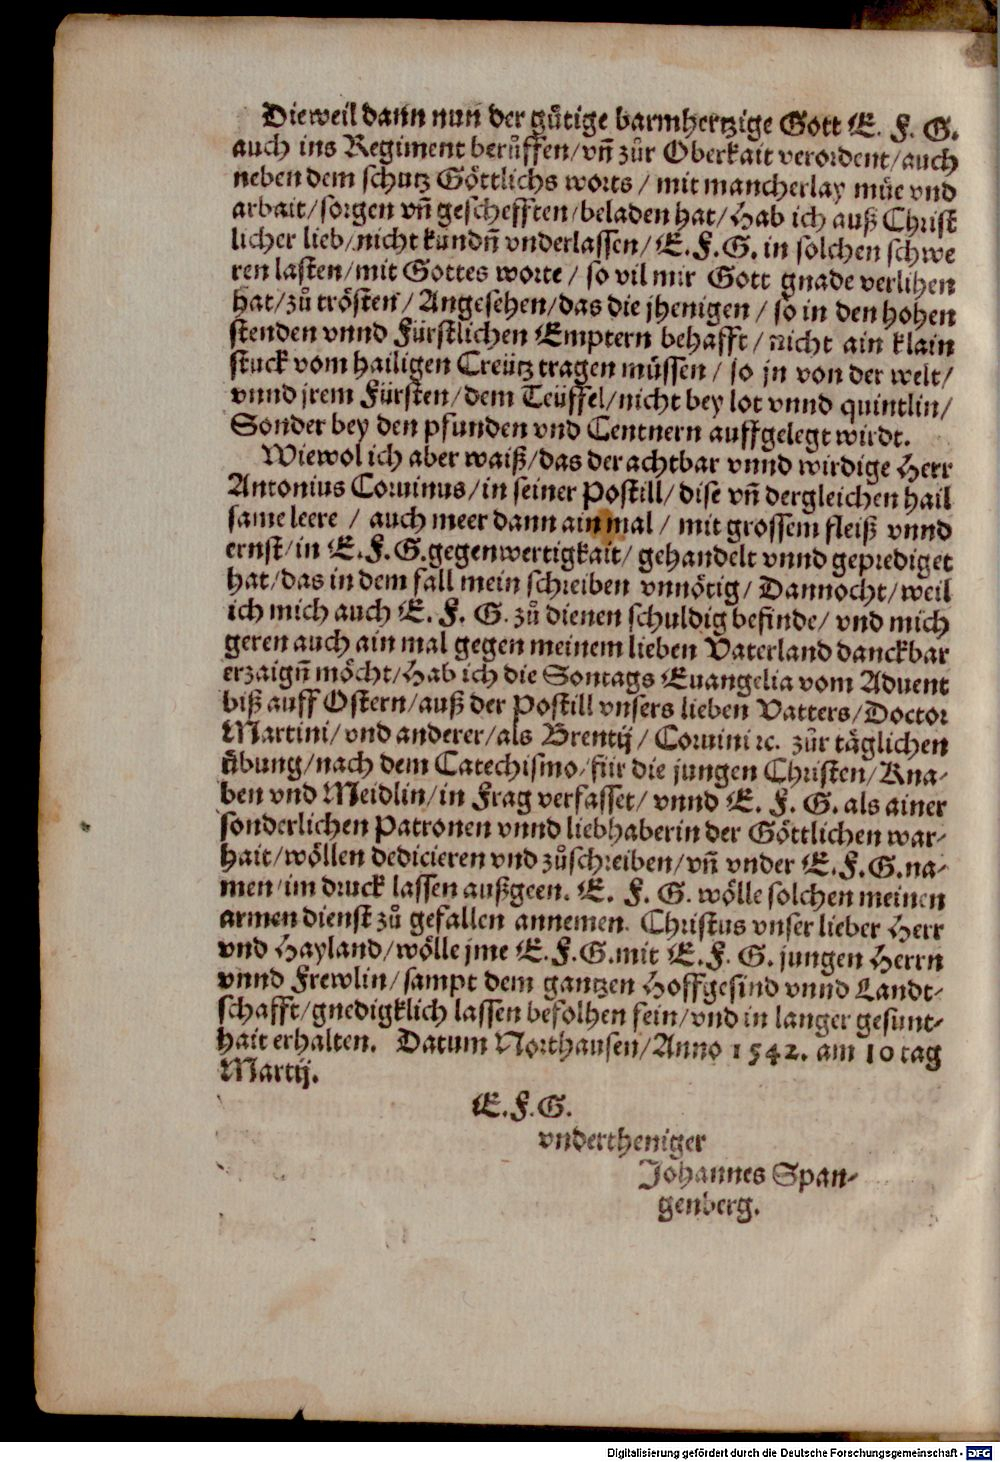 Dieweil dann nun der gůtige barmhertzige Gott E. F. G.
auch ins Regiment berůffen/vñ zůr Oberkait verordent/auch
neben dem schutz Göttlichs worts / mit mancherlay müe vnd
arbait/sorgen vñ geschefften/beladen hat/Hab ich auß Christ
licher lieb/nicht kundñ vnderlassen/E.F.G. in solchen schwe
ren lasten/mit Gottes worte / so vil mir Gott gnade verlihen
hat/zů trösten/ Angesehen/das die jhenigen / so in den hohen
stenden vnnd Fürstlichen Emptern behafft / nicht ain klain
stuck vom hailigen Creütz tragen müssen / so jn von der welt/
vnnd jrem Fürsten/dem Teüffel/nicht bey lot vnnd quintlin/
Sonder bey den pfunden vnd Centnern auffgelegt wirdt.
Wiewol ich aber waiß/das der achtbar vnnd wirdige Herr
Antonius Coruinus/in seiner Postill/dise vñ dergleichen hail
same leere / auch meer dann ain mal / mit grossem fleiß vnnd
ernst/in E.F.G.gegenwertigkait/ gehandelt vnnd geprediget
hat/das in dem fall mein schreiben vnnötig/ Dannocht/weil
ich mich auch E. F. G. zů dienen schuldig befinde/ vnd mich
geren auch ain mal gegen meinem lieben Vaterland danckbar
erzaigñ möcht/Hab ich die Sontags Euangelia vom Aduent
biß auff Ostern/auß der Postill vnsers lieben Vatters/Doctor
Martini/vnd anderer/als Brentij/ Coruini ꝛc. zůr täglichen
übung/nach dem Catechismo/für die jungen Christen/Kna-
ben vnd Meidlin/in Frag verfasset/ vnnd E. F. G. als ainer
sonderlichen Patronen vnnd liebhaberin der Göttlichen war-
hait/wöllen dedicieren vnd zůschreiben/vñ vnder E.F.G.na-
men/im druck lassen außgeen. E. F. G. wölle solchen meinen
armen dienst zů gefallen annemen. Christus vnser lieber Herr
vnd Hayland/wölle jme E.F.G.mit E.F. G. jungen Herrn
vnnd Frewlin/sampt dem gantzen Hoffgesind vnnd Landt-
schafft/gnedigklich lassen befolhen sein/vnd in langer gesunt-
hait erhalten. Datum Northausen/Anno 1542. am 10 tag
Martij.
E.F.G.
vndertheniger
Johannes Span-
genberg.
Digitalisierung gefördert durch die Deutsche Forschungsgemeinschaft - DFG